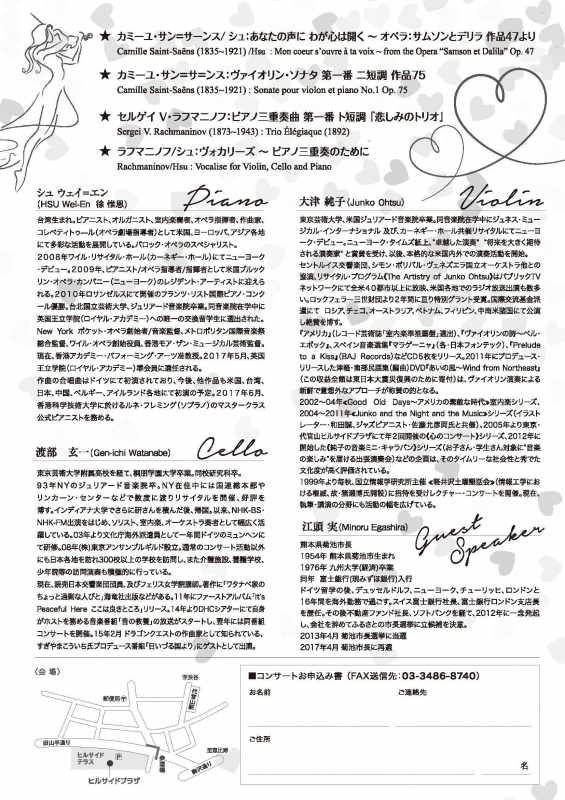 ★ カミーユ・サン=サーンス/ シュ:あなたの声に わが心は開く ～ オペラ:サムソンとデリラ 作品47より
Camille Saint-Saëns (1835~1921) /Hsu : Mon coeur s'ouvre à ta voix ~ from the Opera "Samson et Dalila" Op. 47
★ カミーユ・サン=サーンス:ヴァイオリン・ソナタ 第一番 二短調 作品75
Camille Saint-Saëns (1835~1921) : Sonate pour violon et piano No.1 Op. 75
★ セルゲイ V・ラフマニノフ:ピアノ三重奏曲 第一番 ト短調 『悲しみのトリオ』
Sergei V. Rachmaninov (1873~1943) : Trio Élégiaque (1892)
★ ラフマニノフ/シュ:ヴォカリーズ ～ ピアノ三重奏のために
Rachmaninov/Hsu : Vocalise for Violin, Cello and Piano
シュ ウェイ=エン
(HSU Wei-En 徐 惟恩)
Piano
台湾生まれ。ピアニスト、オルガニスト、室内楽奏者、オペラ指揮者、作曲家、
コレペティトゥール(オペラ劇場指導者)として米国、ヨーロッパ、アジア各地
にて多彩な活動を展開している。バロック・オペラのスペシャリスト。
2008年ワイル・リサイタル・ホール(カーネギー・ホール)にてニューヨーク
・デビュー。2009年、ピアニスト/オペラ指導者/指揮者として米国ブルック
リン・オペラ・カンパニー(ニューヨーク)のレジデント・アーティストに迎えら
れる。2010年ロサンゼルスにて開催のフランツ・リスト国際ピアノ・コンク
ール優勝。台北国立芸術大学、ジュリアード音楽院卒業。同音楽院在学中に
英国王立学院(ロイヤル・アカデミー)への唯一の交換留学生に選出された。
New York ポケット・オペラ創始者/音楽監督、メトロポリタン国際音楽祭
総合監督、ワイル・オペラ創始役員、香港モア・ザン・ミュージカル芸術監督。
現在、香港アカデミー・パフォーミング・アーツ准教授。2017年5月、英国
王立学院(ロイヤル・アカデミー)準会員に選任される。
作曲の合唱曲はドイツにて初演されており、今後、他作品も米国、台湾、
日本、中国、ベルギー、アイルランド各地にて初演の予定。2017年6月、
香港科学技術大学に於けるルネ・フレミング(ソプラノ)のマスタークラス
公式ピアニストを務める。
渡部 玄一(Gen-ichi Watanabe)
Cello
東京芸術大学附属高校を経て、桐朋学園大学卒業。同校研究科卒。
93年NYのジュリアード音楽院卒。NY在住中には国連総本部や
リンカーン・センターなどで数度に渡りリサイタルを開催、好評を
博す。インディアナ大学でさらに研さんを積んだ後、帰国。以来、NHK-BS・
NHK-FM出演をはじめ、ソリスト、室内楽、オーケストラ奏者として幅広く活
躍している。03年より文化庁海外派遣員として一年間ドイツのミュンヘンに
て研修。08年(株)東京アンサンブルギルド設立。通常のコンサート活動以外
にも日本各地を訪れ300校以上の学校を訪問し、また介護施設、養護学校、
少年院等の訪問演奏も積極的に行っている。
現在、読売日本交響楽団団員、及びフェリス女学院講師。著作に「ワタナベ家の
ちょっと過剰な人びと」海竜社出版などがある。11年にファーストアルバム「It's
Peaceful Here ここは良きところ」リリース。14年よりDHCシアターにて自身
がホストを務める音楽番組「音の教養」の放送がスタートし、翌年には同番組
コンサートを開催。15年2月 ドラゴンクエストの作曲家として知られている、
すぎやまこういち氏プロデュース番組「日いづる国より」にゲストとして出演。
大津 純子(Junko Ohtsu)
Violin
東京芸術大学、米国ジュリアード音楽院卒業。同音楽院在中にジュネス・ミュー
ジカル・インターナショナル 及び、カーネギー・ホール共催リサイタルにてニューヨ
ーク・デビュー。ニューヨーク・タイムズ紙上、"卓越した演奏" "将来を大きく期待
される演奏家" と賞賛を受け、以後、本格的な米国内外での演奏活動を開始。
セントルイス交響楽団、シモン・ボリバル・ヴェネズエラ国立オーケストラ他との
協演、リサイタル・プログラム《The Artistry of Junko Ohtsu》はパブリックTV
ネットワークにて全米40都市以上に放映、米国各地でのラジオ放送出演も数多
い。ロックフェラー三世財団より2年間に亘り特別グラント受賞。国際交流基金派
遣にて ロシア、チェコ、オーストラリア、ベトナム、フィリピン、中南米諸国にて公演
し絶賛を博す。
『アメリカ』(レコード芸術誌「室内楽準推薦盤」選出)、『ヴァイオリンの詩～ベル・
エポック』、スペイン音楽選集『マラゲーニャ』(各・日本フォンテック)、『Prelude
to a Kiss』(BAJ Records)などCD5枚をリリース。2011年にプロデュース・
リリースした津軽・南部民謡集(編曲)DVD『あいの風～Wind from Northeast』
(この収益全額は東日本大震災復興のために寄付)は、ヴァイオリン演奏による
新鮮で意想外なアプローチが称賛の的となる。
2002～04年≪Good Old Days～アメリカの素敵な時代≫室内楽シリーズ、
2004～2011年≪Junko and the Night and the Music≫シリーズ(イラスト
レーター・和田誠、ジャズピアニスト・佐藤允彦両氏と共催)、2005年より東京・
代官山ヒルサイドプラザにて年2回開催の《心のコンサート》シリーズ、2012年に
開始した《純子の音楽ミニ・キャラバン》シリーズ(お子さん・学生さん対象に"音楽
の楽しみ"を届ける出張演奏会)などの企画は、そのタイムリーな社会性と秀でた
文化度が高く評価されている。
1999年より毎秋、国立情報学研究所主催 ≪軽井沢土曜懇話会≫(情報工学にお
ける権威、故・猪瀬博氏開設)に招待を受けレクチャー・コンサートを開催。現在、
執筆・講演の分野にも活動の幅を広げている。
江頭 実(Minoru Egashira)
Guest Speaker
熊本県菊池市長
1954年 熊本県菊池市生まれ
1976年 九州大学(経済)卒業
同年 富士銀行(現みずほ銀行)入行
ドイツ留学の後、デュッセルドルフ、ニューヨーク、チューリッヒ、ロンドンと
16年間を海外勤務で過ごす。スイス富士銀行社長、富士銀行ロンドン支店長
を歴任。その後不動産ファンド社長、ソフトバンクを経て、2012年に一念発起
し、会社を辞めてふるさとの市長選挙に立候補を決意。
2013年4月 菊池市長選挙に当選
2017年4月 菊池市長に再選
〈会 場〉
至渋谷
郵便局
代官山駅
旧山手通り
ヒルサイド
テラス
P
至恵比寿
歩道橋
駒沢通り
ヒルサイドプラザ
■コンサートお申込み書 (FAX送信先: 03-3486-8740)
お名前
ご連絡先
ご住所
名